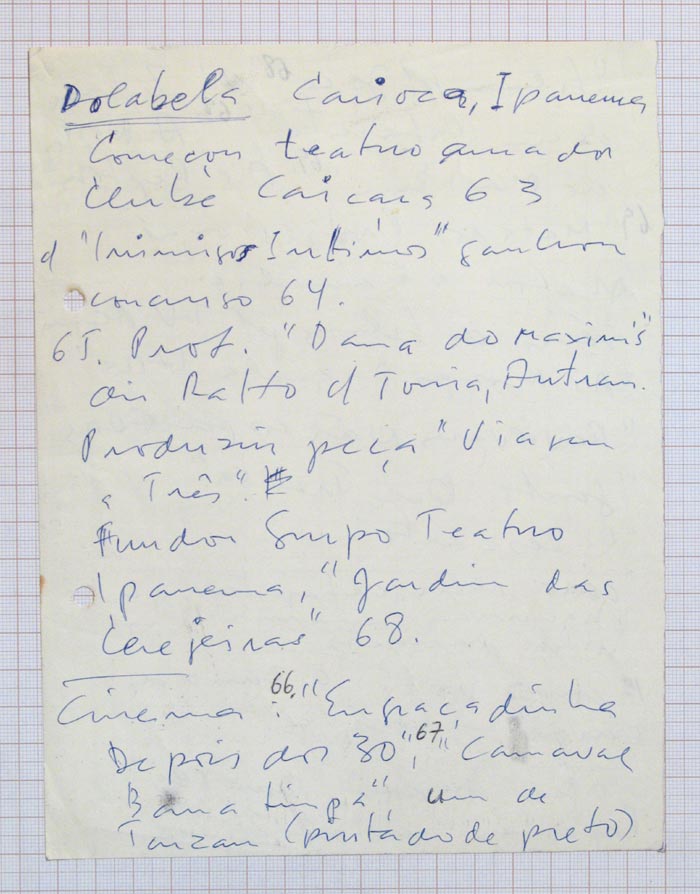 Dolabela Carioca, Ipanema
Começou teatro amador
Clube Caiçara 63
d "Inimigos Íntimos" ganhou
concurso 64.
65. Prof. "Dama do Maxim's"
dir Ratto d Tonia, Autran.
Produziu peça "Viagem
a Três".
Fundou Grupo Teatro
Ipanema, "Jardim das
Cerejeiras" 68.
Cinema: 66. "Engraçadinha
Depois dos 30", 67, "Carnaval
Barra limpa", um de
Tarzan (pintado de preto)